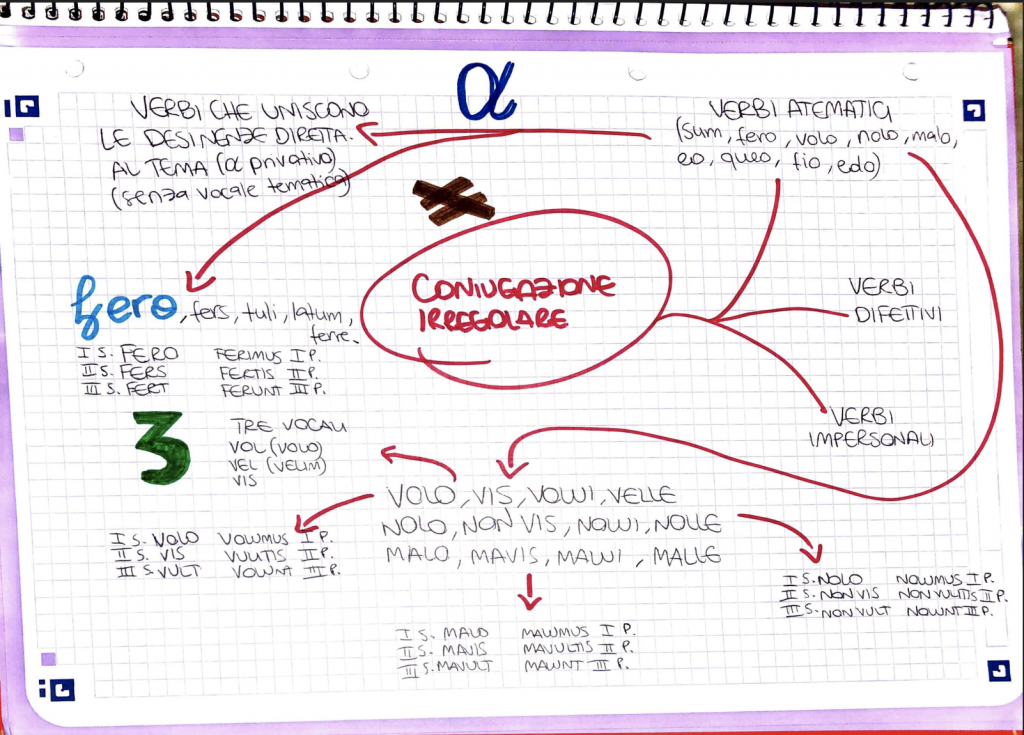 α
VERBI CHE UNISCONO
LE DESINENZE DIRETTA.
AL TEMA (α privativo)
(senza vocale tematica)
VERBI ATEMATICI
(sum, fero, volo, nolo, malo,
eo, queo, fio, edo)
CONIUGAZIONE
IRREGOLARE
VERBI
DIFETTIVI
VERBI
IMPERSONALI
fero, fers, tuli, latum,
ferre.
I S. FERO FERIMUS I P.
II S. FERS FERTIS II P.
III S. FERT FERUNT III P.
3
TRE VOCALI
VOL (VOLO)
VEL (VELIM)
VIS
VOLO, VIS, VOLUI, VELLE
NOLO, NON VIS, NOLUI, NOLLE
MALO, MAVIS, MALUI, MALLE
I S. VOLO VOLUMUS I P.
II S. VIS VULTIS II P.
III S. VULT VOLUNT III P.
I S. NOLO NOLUMUS I P.
II S. NON VIS NON VULTIS II P.
III S. NON VULT NOLUNT III P.
I S. MALO MALUMUS I P.
II S. MAVIS MAVULTIS II P.
III S. MAVULT MALUNT III P.